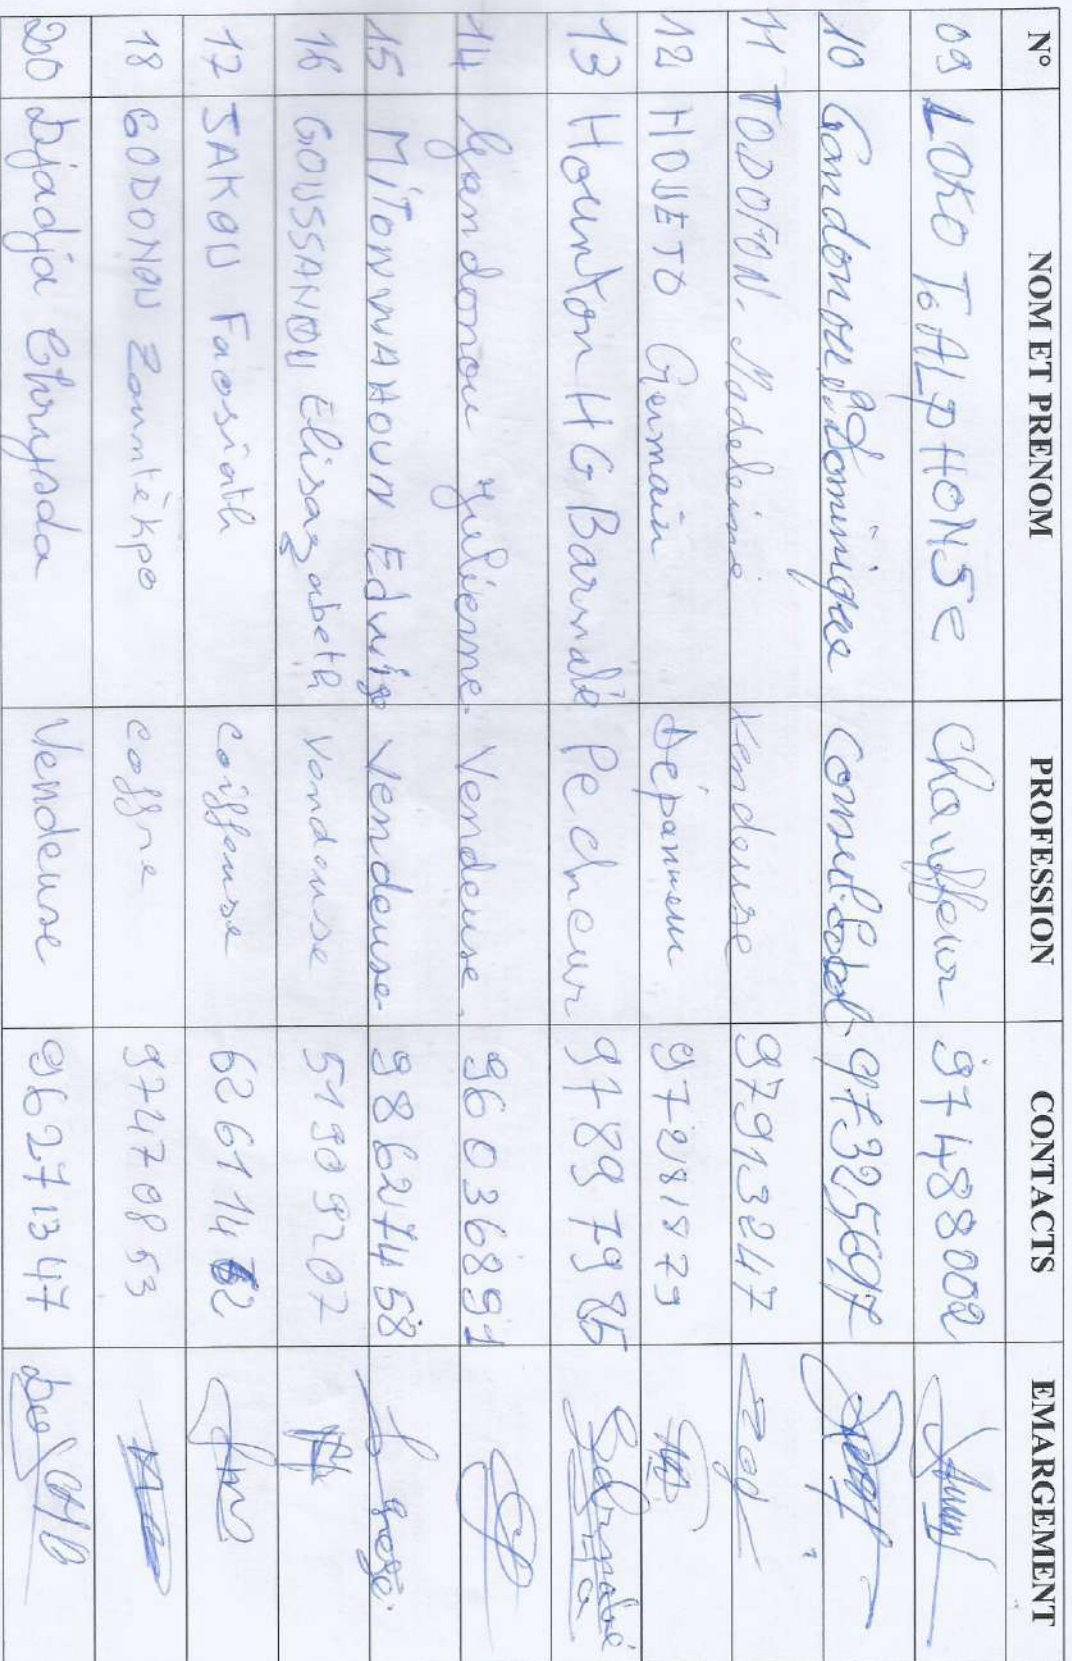 N° NOM ET PRENOM PROFESSION CONTACTS EMARGEMENT
09 LOKO T. ALPHONSE Chauffeur 97488002
10 Gandonou Dominique 97325697
11 TODOFON. Madeleine Vendeuse 97913247
12 HOUETO Germain Dépanneur 97281879
13 Hounton HG Barnabé Pecheur 97897985
14 Gandonou Julienne. Vendeuse. 96036891
15 MiTONWAHOUN Edwige Vendeuse 98627458
16 GOUSSANOU Elisazabeth Vendeuse 51909207
17 SAKOU Faosiath Coiffeuse 62611462
18 GODONOU Zountèkpo coffre 97470853
20 Djadja Chrysda Vendeuse 96271347